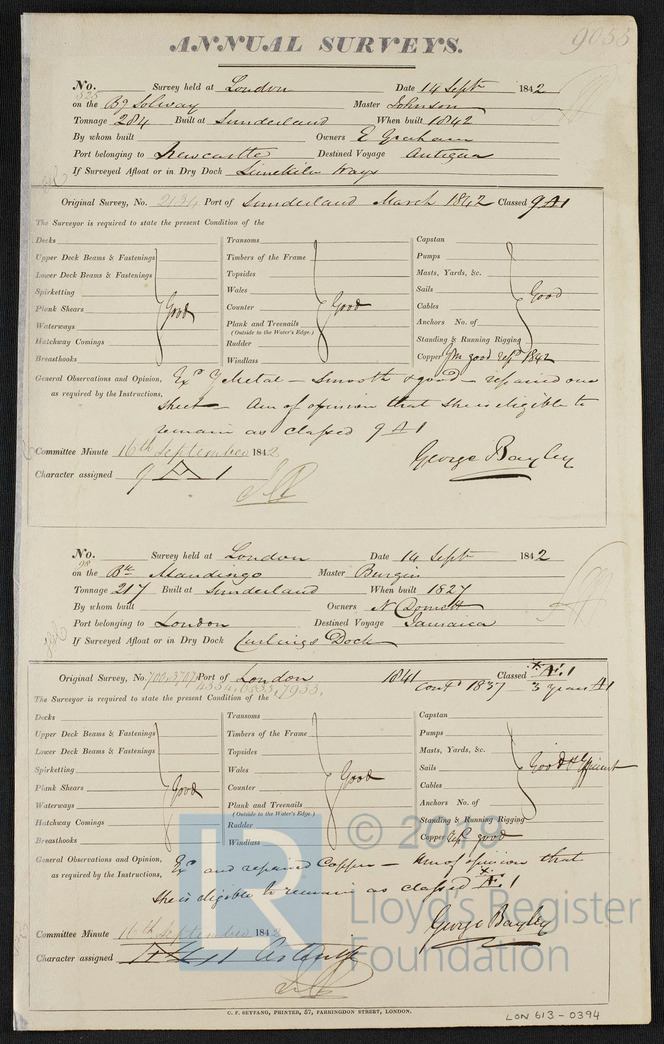 ANNUAL SURVEYS.
9055
No. 525 Survey held at London Date 14 Sept 1842
on the Bg Solway Master Johnson
Tonnage 284 Built at Sunderland When built 1842
By whom built Owners E Graham
Port belonging to Newcastle Destined Voyage Antigua
If Surveyed Afloat or in Dry Dock Limekiln Ways
Original Survey, No. 2134 Port of Sunderland March 1842 Classed 9 A 1
The Surveyor is required to state the present Condition of the
Decks Transoms Capstan
Upper Deck Beams & Fastenings Timbers of the Frame Pumps
Lower Deck Beams & Fastenings Topsides Masts, Yards, &c.
Spirketting Wales Sails Good
Plank Shears Good Counter Good Cables
Waterways Plank and Treenails Anchors No. of
(Outside to the Water's Edge.)
Hatchway Comings Rudder Standing & Running Rigging
Breasthooks Windlass Copper Ym good repd 1842
General Observations and Opinion, Exd Y Metal – Smooth & good – repaired one
as required by the Instructions, Sheet – Am of opinion that she is eligible to
remain as classed 9 A 1
Committee Minute 16th September 1842 George Bayley
Character assigned 9 A 1
No. 98 Survey held at London Date 14 Sept 1842
on the Bk Mandingo Master Burgin
Tonnage 217 Built at Sunderland When built 1827
By whom built Owners N Domett
Port belonging to London Destined Voyage Jamaica
If Surveyed Afloat or in Dry Dock Curlings Dock
Original Survey, No. Port of London 1841 Classed * Æ 1
Contd 1837 3 years A 1
The Surveyor is required to state the present Condition of the
Decks Transoms Capstan
Upper Deck Beams & Fastenings Timbers of the Frame Pumps
Lower Deck Beams & Fastenings Topsides Masts, Yards, &c.
Spirketting Wales Sails Good & Efficient
Plank Shears Good Counter Good Cables
Waterways Plank and Treenails Anchors No. of
(Outside to the Water's Edge.)
Hatchway Comings Rudder Standing & Running Rigging
Breasthooks Windlass Copper repd good
General Observations and Opinion, Exd and repaired Copper – Am of opinion that
as required by the Instructions, she is eligible to remain as classed * Æ 1
George Bayley
Committee Minute 16th September 1842
Character assigned
© 2019
LR
Lloyd's Register
Foundation
C. F. SEYFANG, PRINTER, 57, FARRINGDON STREET, LONDON.
LON 613-0394